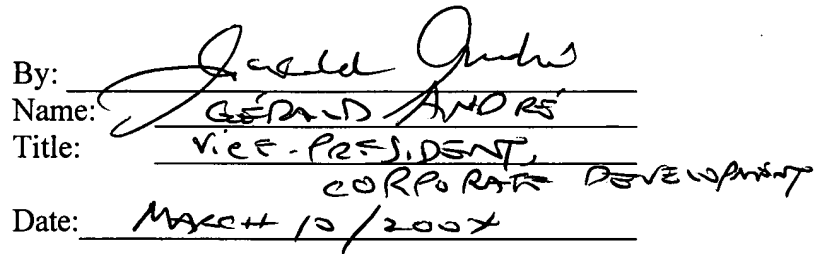 By: Gerald André
Name: GÉRALD ANDRÉ
Title: VICE-PRESIDENT,
CORPORATE DEVELOPMENT
Date: MARCH 10/